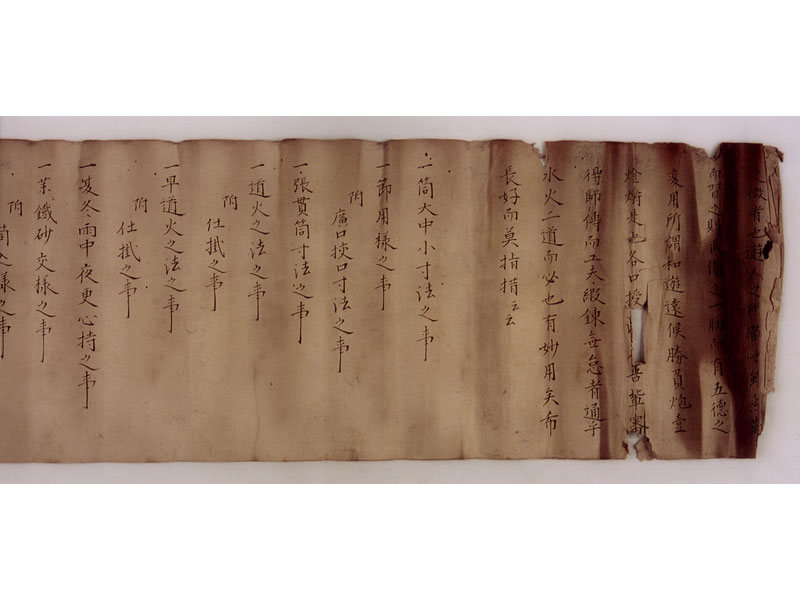 微者也遊
而習之則 而有五德之
変用所謂和遊遠候勝負炮臺
也各口授 吾輩審
得師傳而工夫緞錬無怠者通乎
水火二道而必也有妙用矣布
長好而莫指揩云云
一筒大中小寸法之事
一節用様之事
附 廣口挾口寸法之事
一張貫筒寸法之事
一道火之法之事
附 仕掛之事
一早道火之法之事
附 仕掛之事
一夏冬雨中夜更心持之事
一薬鐵砂交様之事
附 筒之様之事